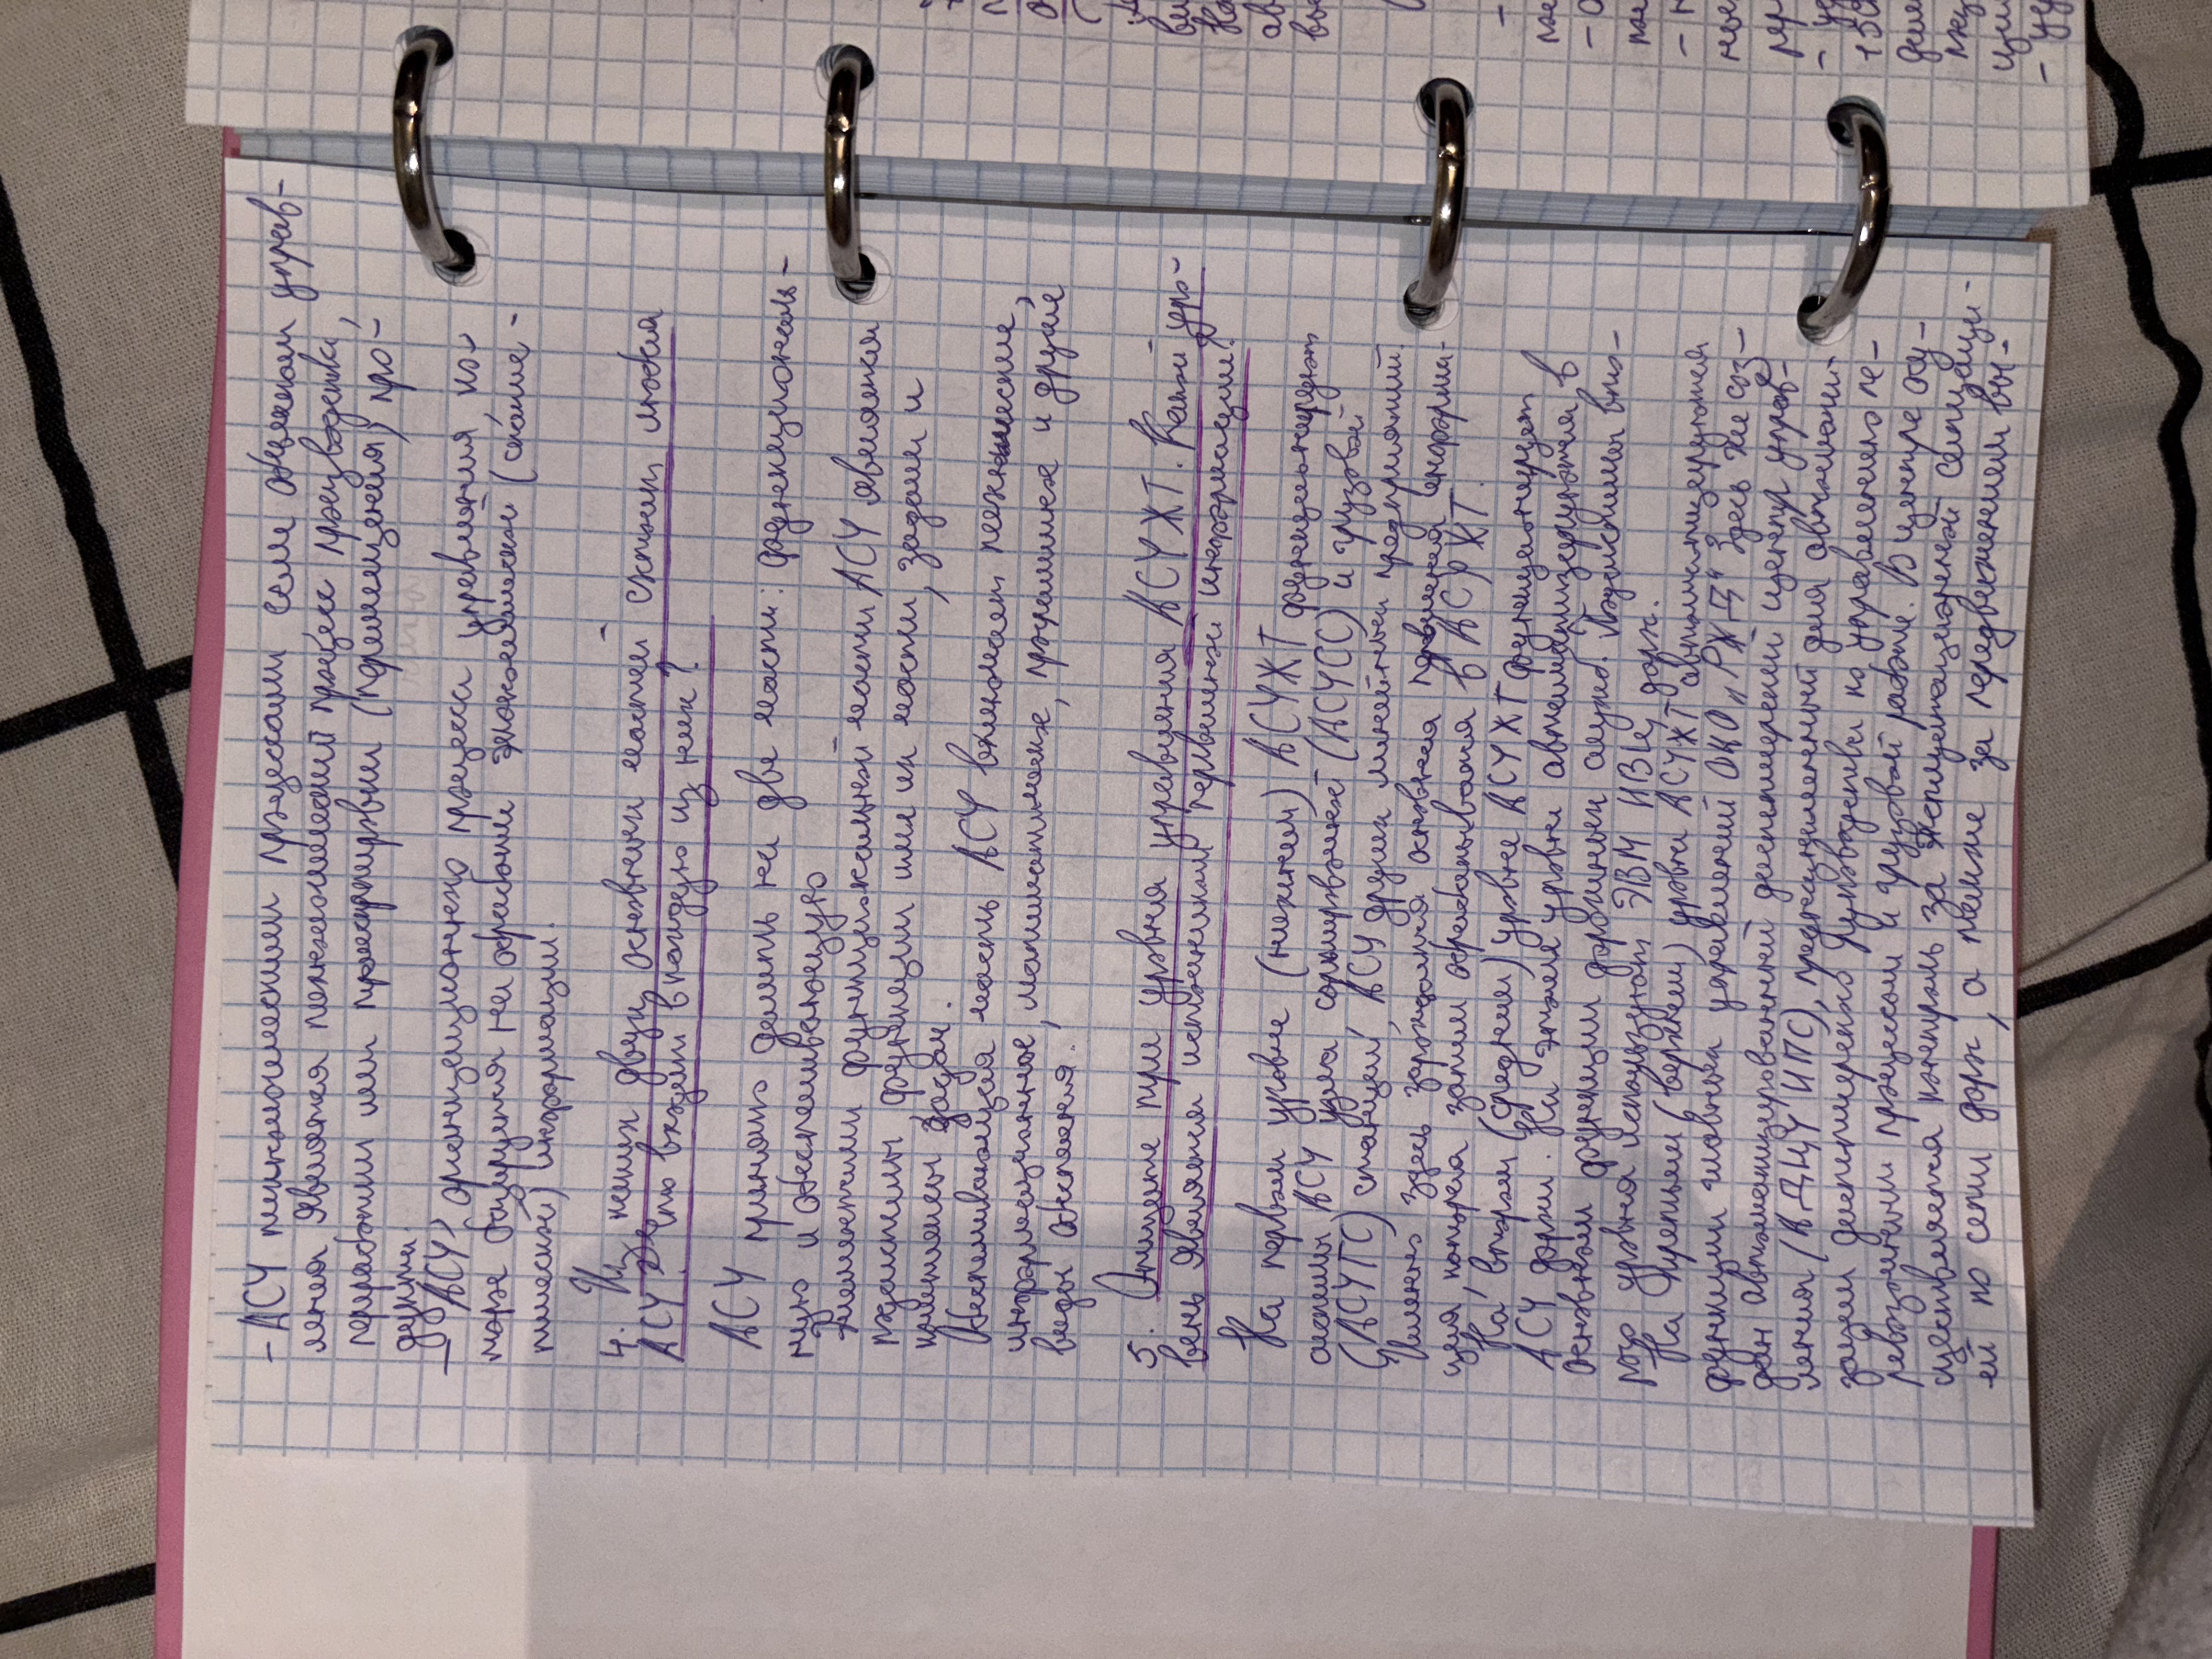 - АСУ технологическими процессами если объектом управ-
ления является технологический процесс производства,
переработки или транспортировки (перемещения) про-
дукции.
- АСУ организационного процесса управления ко-
торое базируется на обработке экономической (статис-
тической) информации.
4. Из каких двух основных частей состоит любая
АСУ. Что входит в каждую из них?
АСУ принято делить на две части: функциональ-
ную и обеспечивающую
Элементами функциональной части АСУ являются
подсистемы функции или их части, задачи и
комплексы задач.
Обеспечивающая часть АСУ включает техническое,
информационное, математическое, программное и другие
виды обеспечения.
5. Опишите три уровня управления АСУЖТ. Какой уро-
вень является источником первичной информации?
На первом уровне (нижнем) АСУЖТ функционируют
системы АСУ узла сортировочной (АСУСС) и грузовой
(АСУГС) станций, АСУ других линейных предприятий.
Именно здесь зарождается основная первичная информа-
ция, которая затем обрабатывается в АСУЖТ.
На втором (среднем) уровне АСУЖТ функционирует
АСУ дороги. На этом уровне автоматизируются в
основном функции дорожных служб. Подсистемы вто-
рого уровня используют ЭВМ ИВЦ дорог.
На третьем (верхнем) уровне АСУЖТ автоматизируются
функции главных управлений ОАО „РЖД" Здесь же соз-
дан автоматизированный диспетчерский центр управ-
ления (АДЦУ МПС), предназначенный для автоматии-
зации диспетчерского руководства по управлению пе-
ревозочным процессом и грузовой работе. В центре осу-
ществляется контроль за эксплуатационной ситуаци-
ей по сети дорог, а также за передвижением ва-